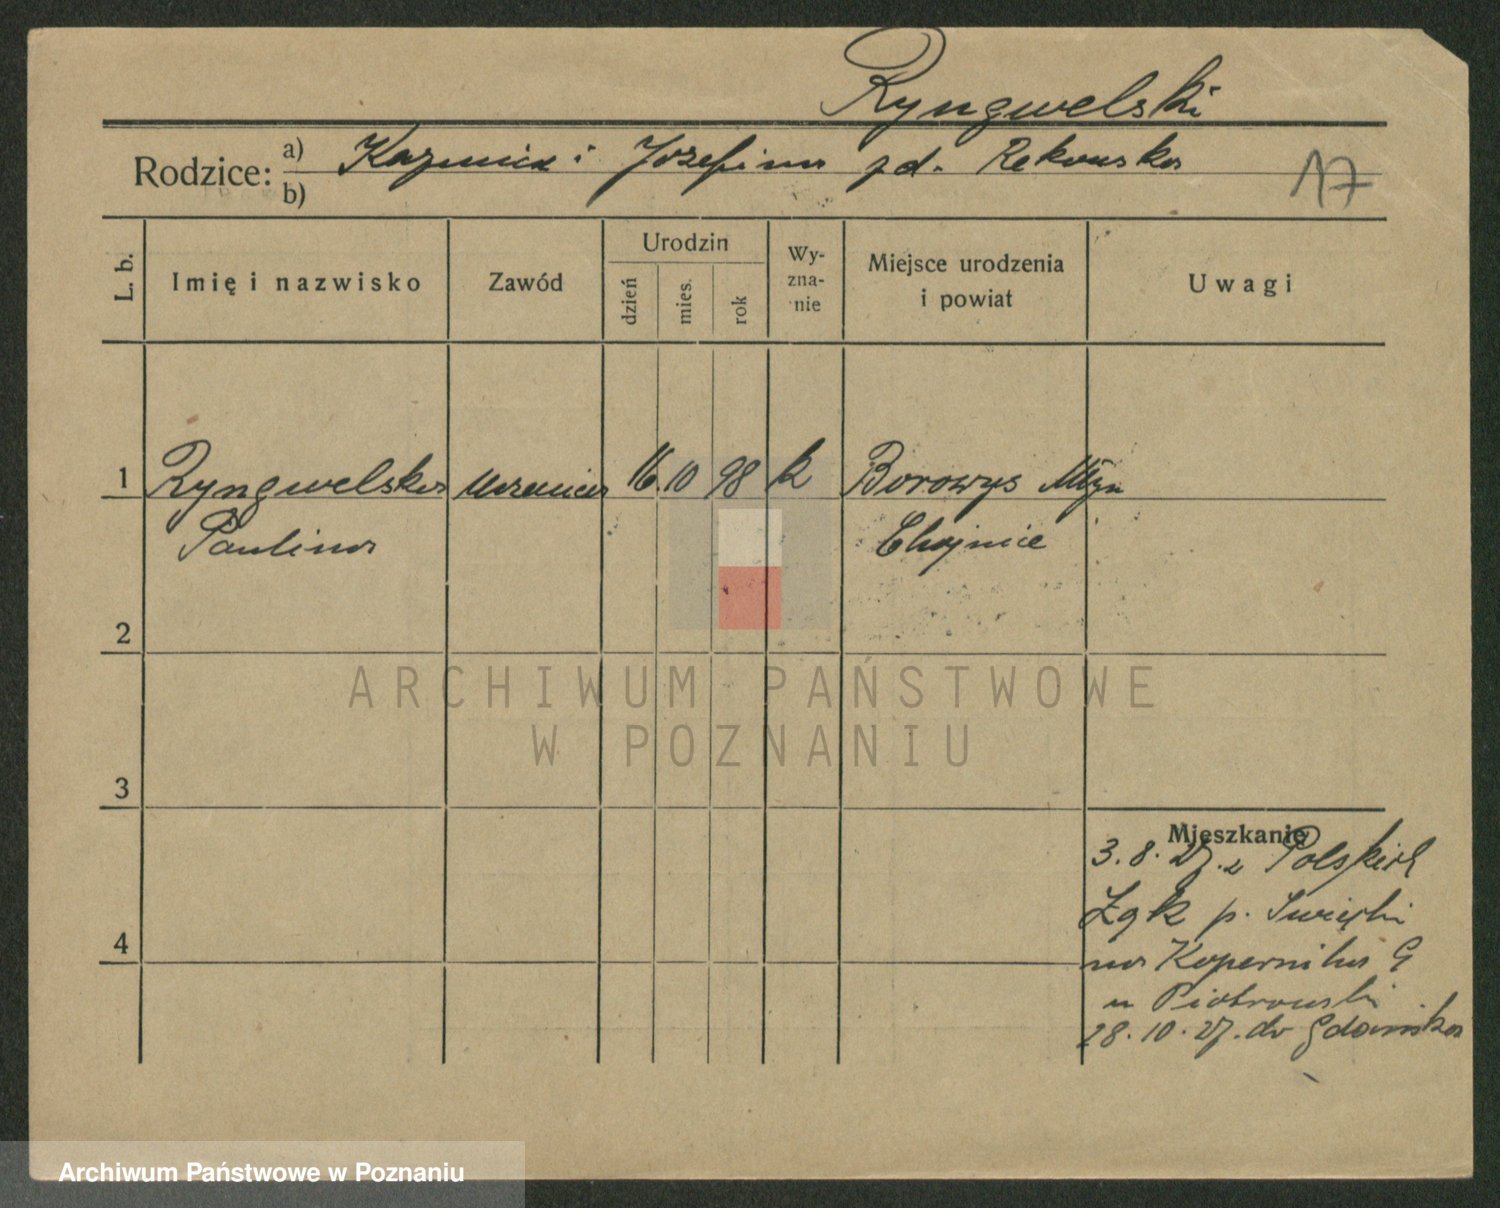 Ryngwelski
Rodzice: a) Kazmierz i Józefina zd. Rekowska
b)
17
L. b.
Imię i nazwisko
Zawód
Urodzin
dzień
mies.
rok
Wy-
zna-
nie
Miejsce urodzenia
i powiat
Uwagi
1 Ryngwelska uczenica 16. 10 98 k Borowys Młyn
Paulina Chojnice
2
3
4
Mieszkanie
3. 8. 27. z Polskich
Łąk p. Świecki
na Kopernika 9
u Piotrowski
28. 10. 27. do Gdańska
ARCHIWUM PAŃSTWOWE
W POZNANIU
Archiwum Państwowe w Poznaniu